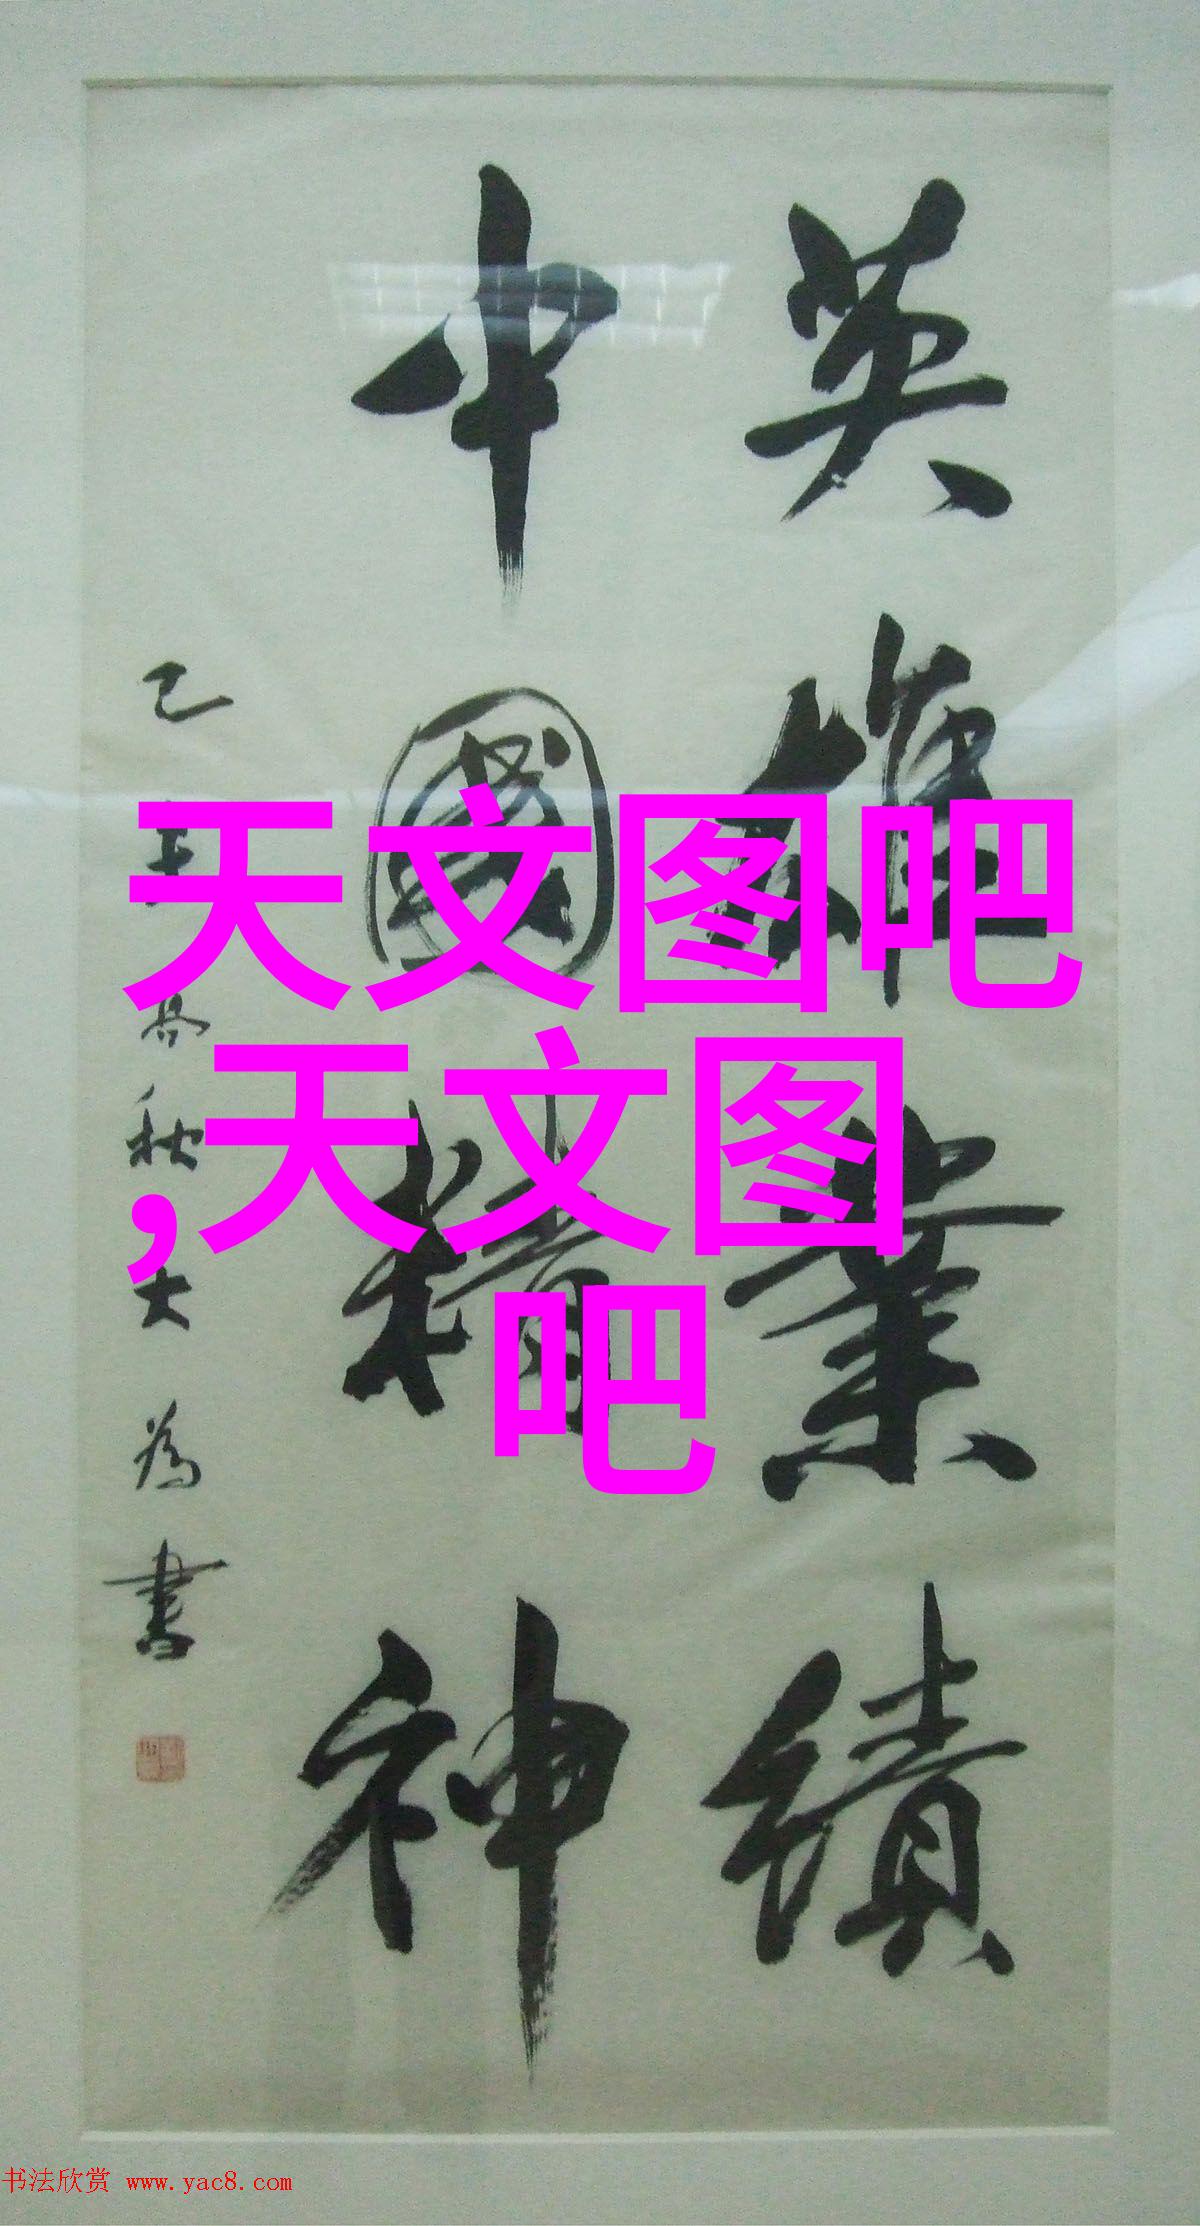 英雄業績
中國精神
己丑高秋大為書
天文图吧
,天文图
吧
书法欣赏 www.yac8.com